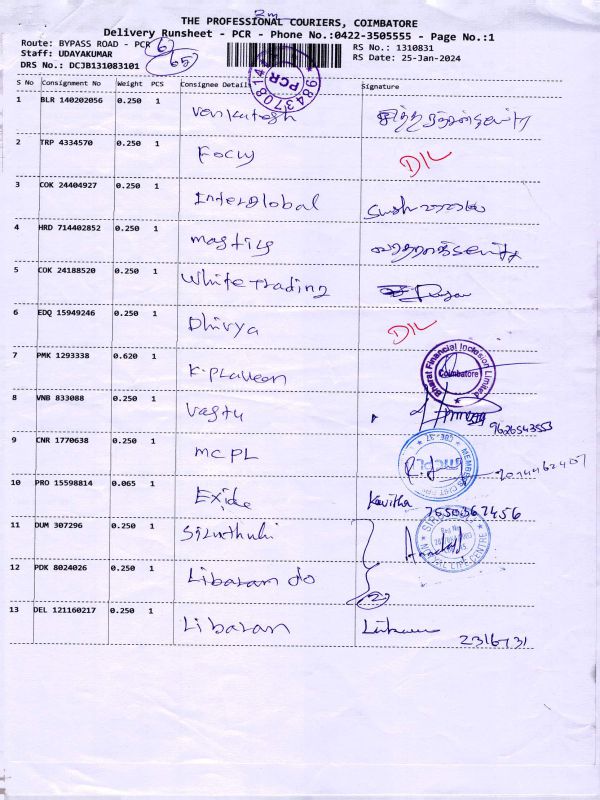 2m
THE PROFESSIONAL COURIERS, COIMBATORE
Delivery Runsheet - PCR - Phone No.:0422-3505555 - Page No.:1
Route: BYPASS ROAD - PCR 6 RS No.: 1310831
Staff: UDAYAKUMAR RS Date: 25-Jan-2024
DRS No.: DCJB131083101 65
PCR 984370814
S No Consignment No Weight PCS Consignee Details Signature
1 BLR 140202056 0.250 1 Venkatesh
2 TRP 4334570 0.250 1 Focus DIL
3 COK 24404927 0.250 1 Interglobal
4 HRD 714402852 0.250 1
5 COK 24188520 0.250 1 White Trading
6 EDQ 15949246 0.250 1 Dhivya DIL
7 PMK 1293338 0.620 1 K. Praveen
Bharat Financial Inclusion Limited Coimbatore
8 VNB 833088 0.250 1 Vastu 9626543553
9 CNR 1770638 0.250 1 MCPL
mcpl
10 PRO 15598814 0.065 1 Exide Kavitha 7550367456
11 DUM 307296 0.250 1
12 PDK 8024026 0.250 1 Libaran do
2
13 DEL 121160217 0.250 1 Libaran 2316731